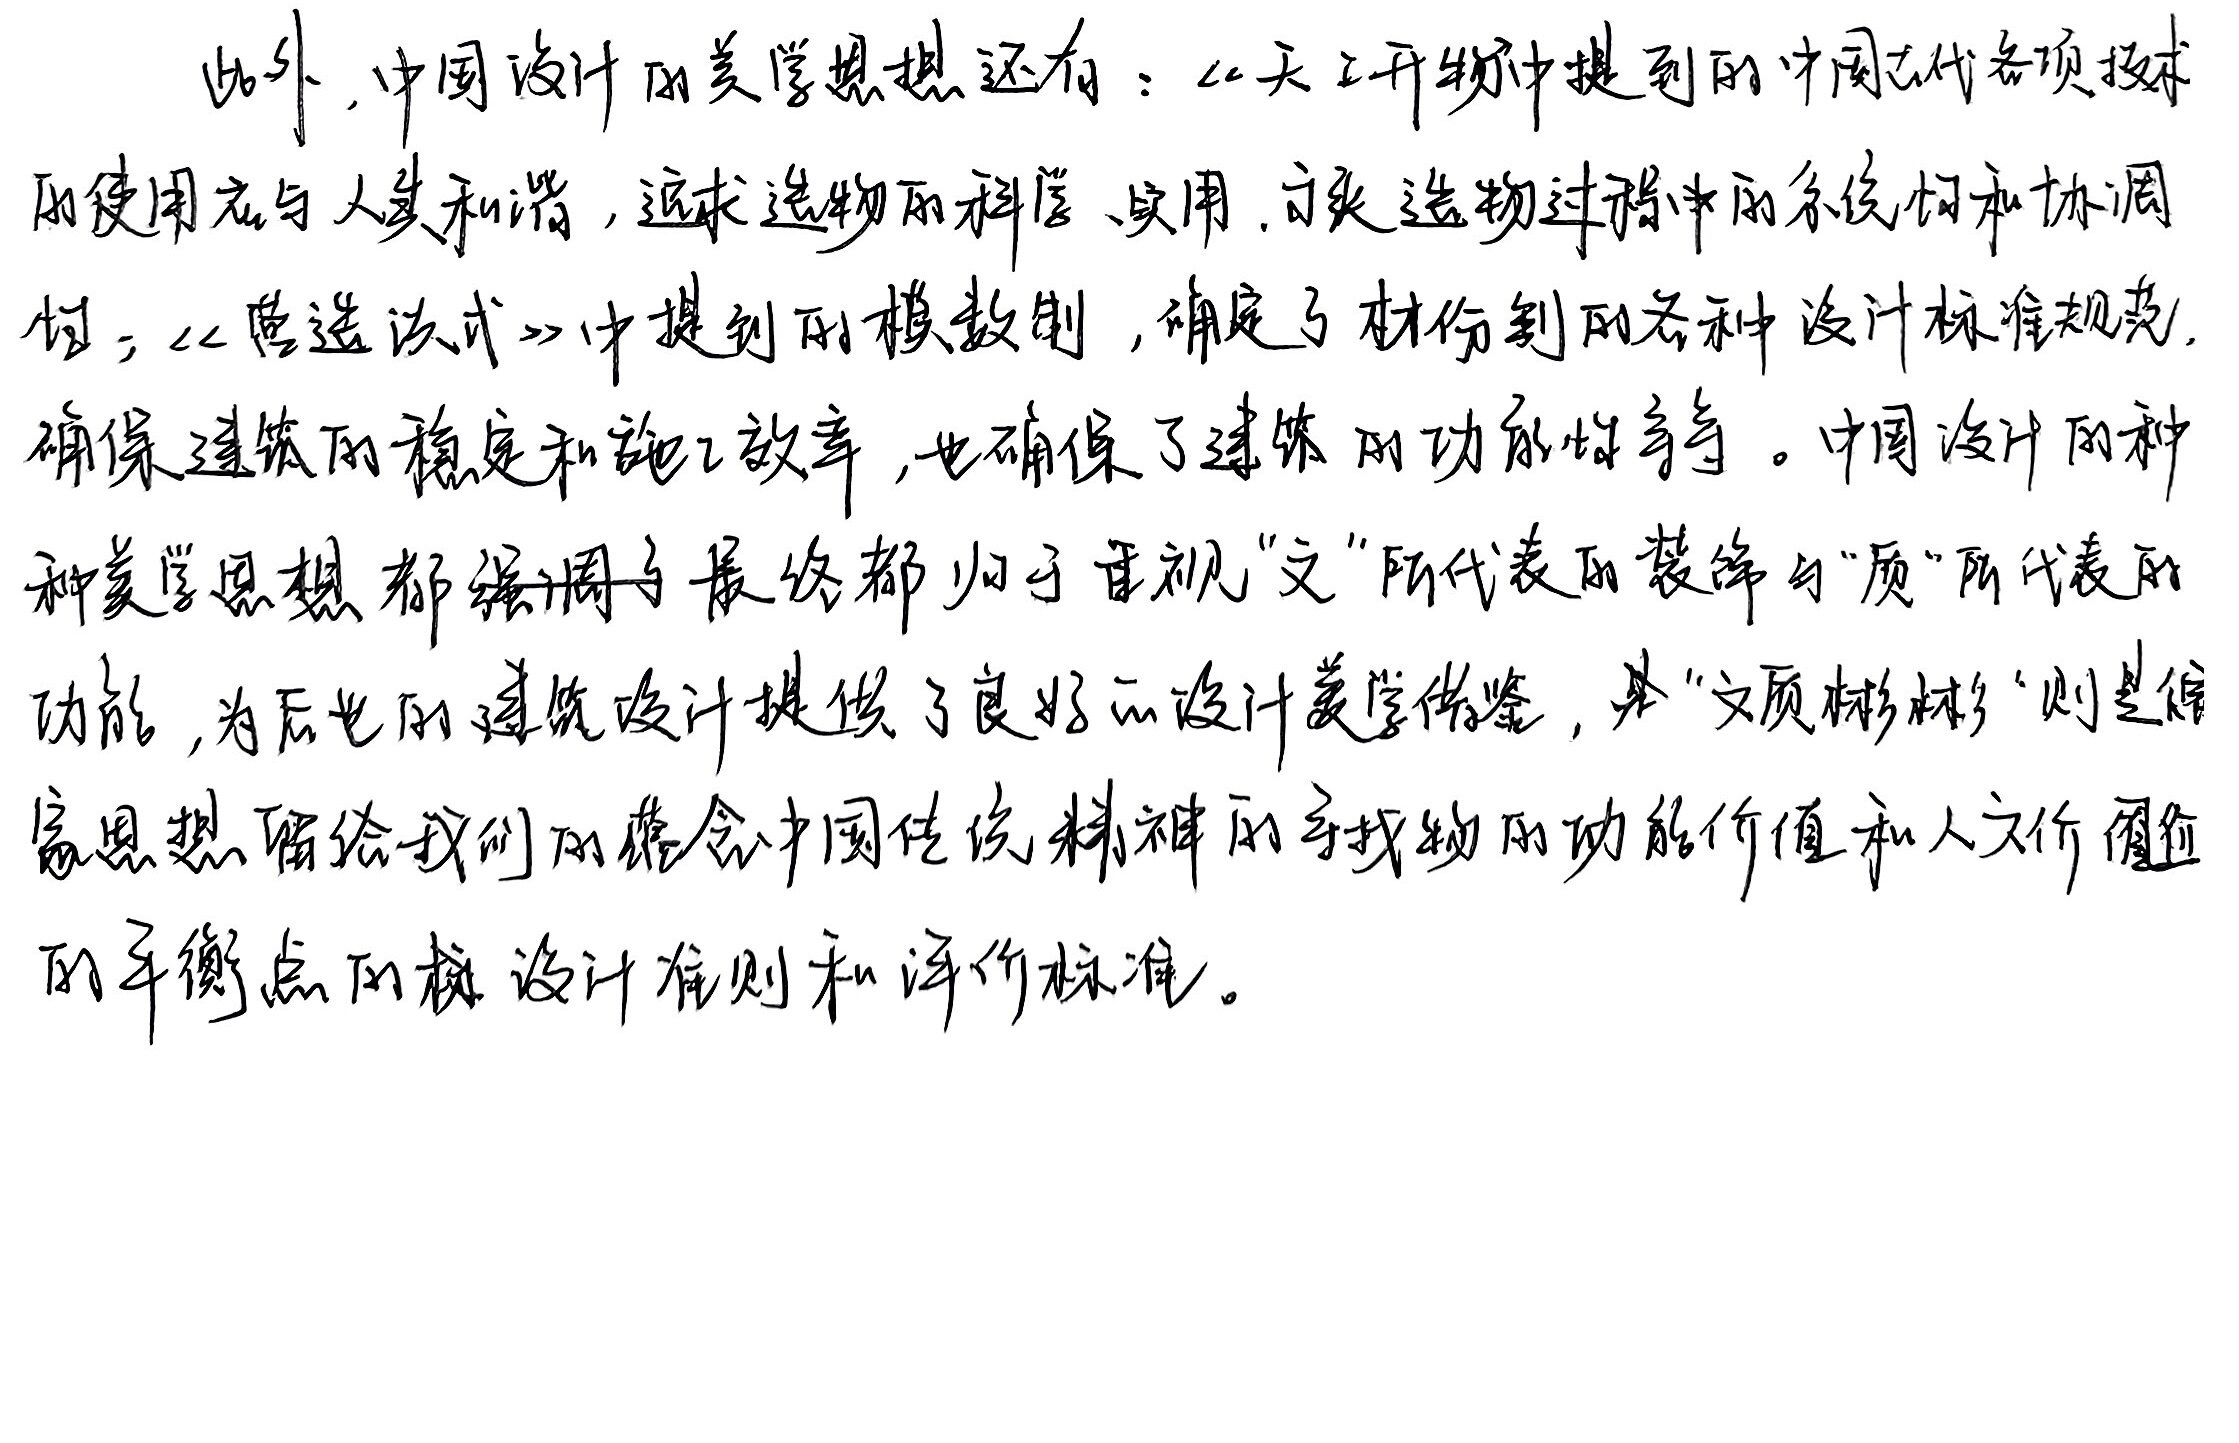 此外,中国设计的美学思想还有:《天工开物中提到的中国古代各项技术
的使用应与人类和谐,追求造物的科学、实用.力求造物过程中的系统性和协调
性;《营造法式》中提到的模数制,确定了材份制的各种设计标准规范,
确保建筑的稳定和施工效率,也确保了建筑的功能性等等。中国设计的种
种美学思想都强调了最终都归于重视"文"所代表的装饰与"质"所代表的
功能,为后世的建筑设计提供了良好的设计美学借鉴,是"文质彬彬"则是儒
家思想留给我们的符合中国传统精神的寻找物的功能价值和人文价值
的平衡点的设计准则和评价标准。